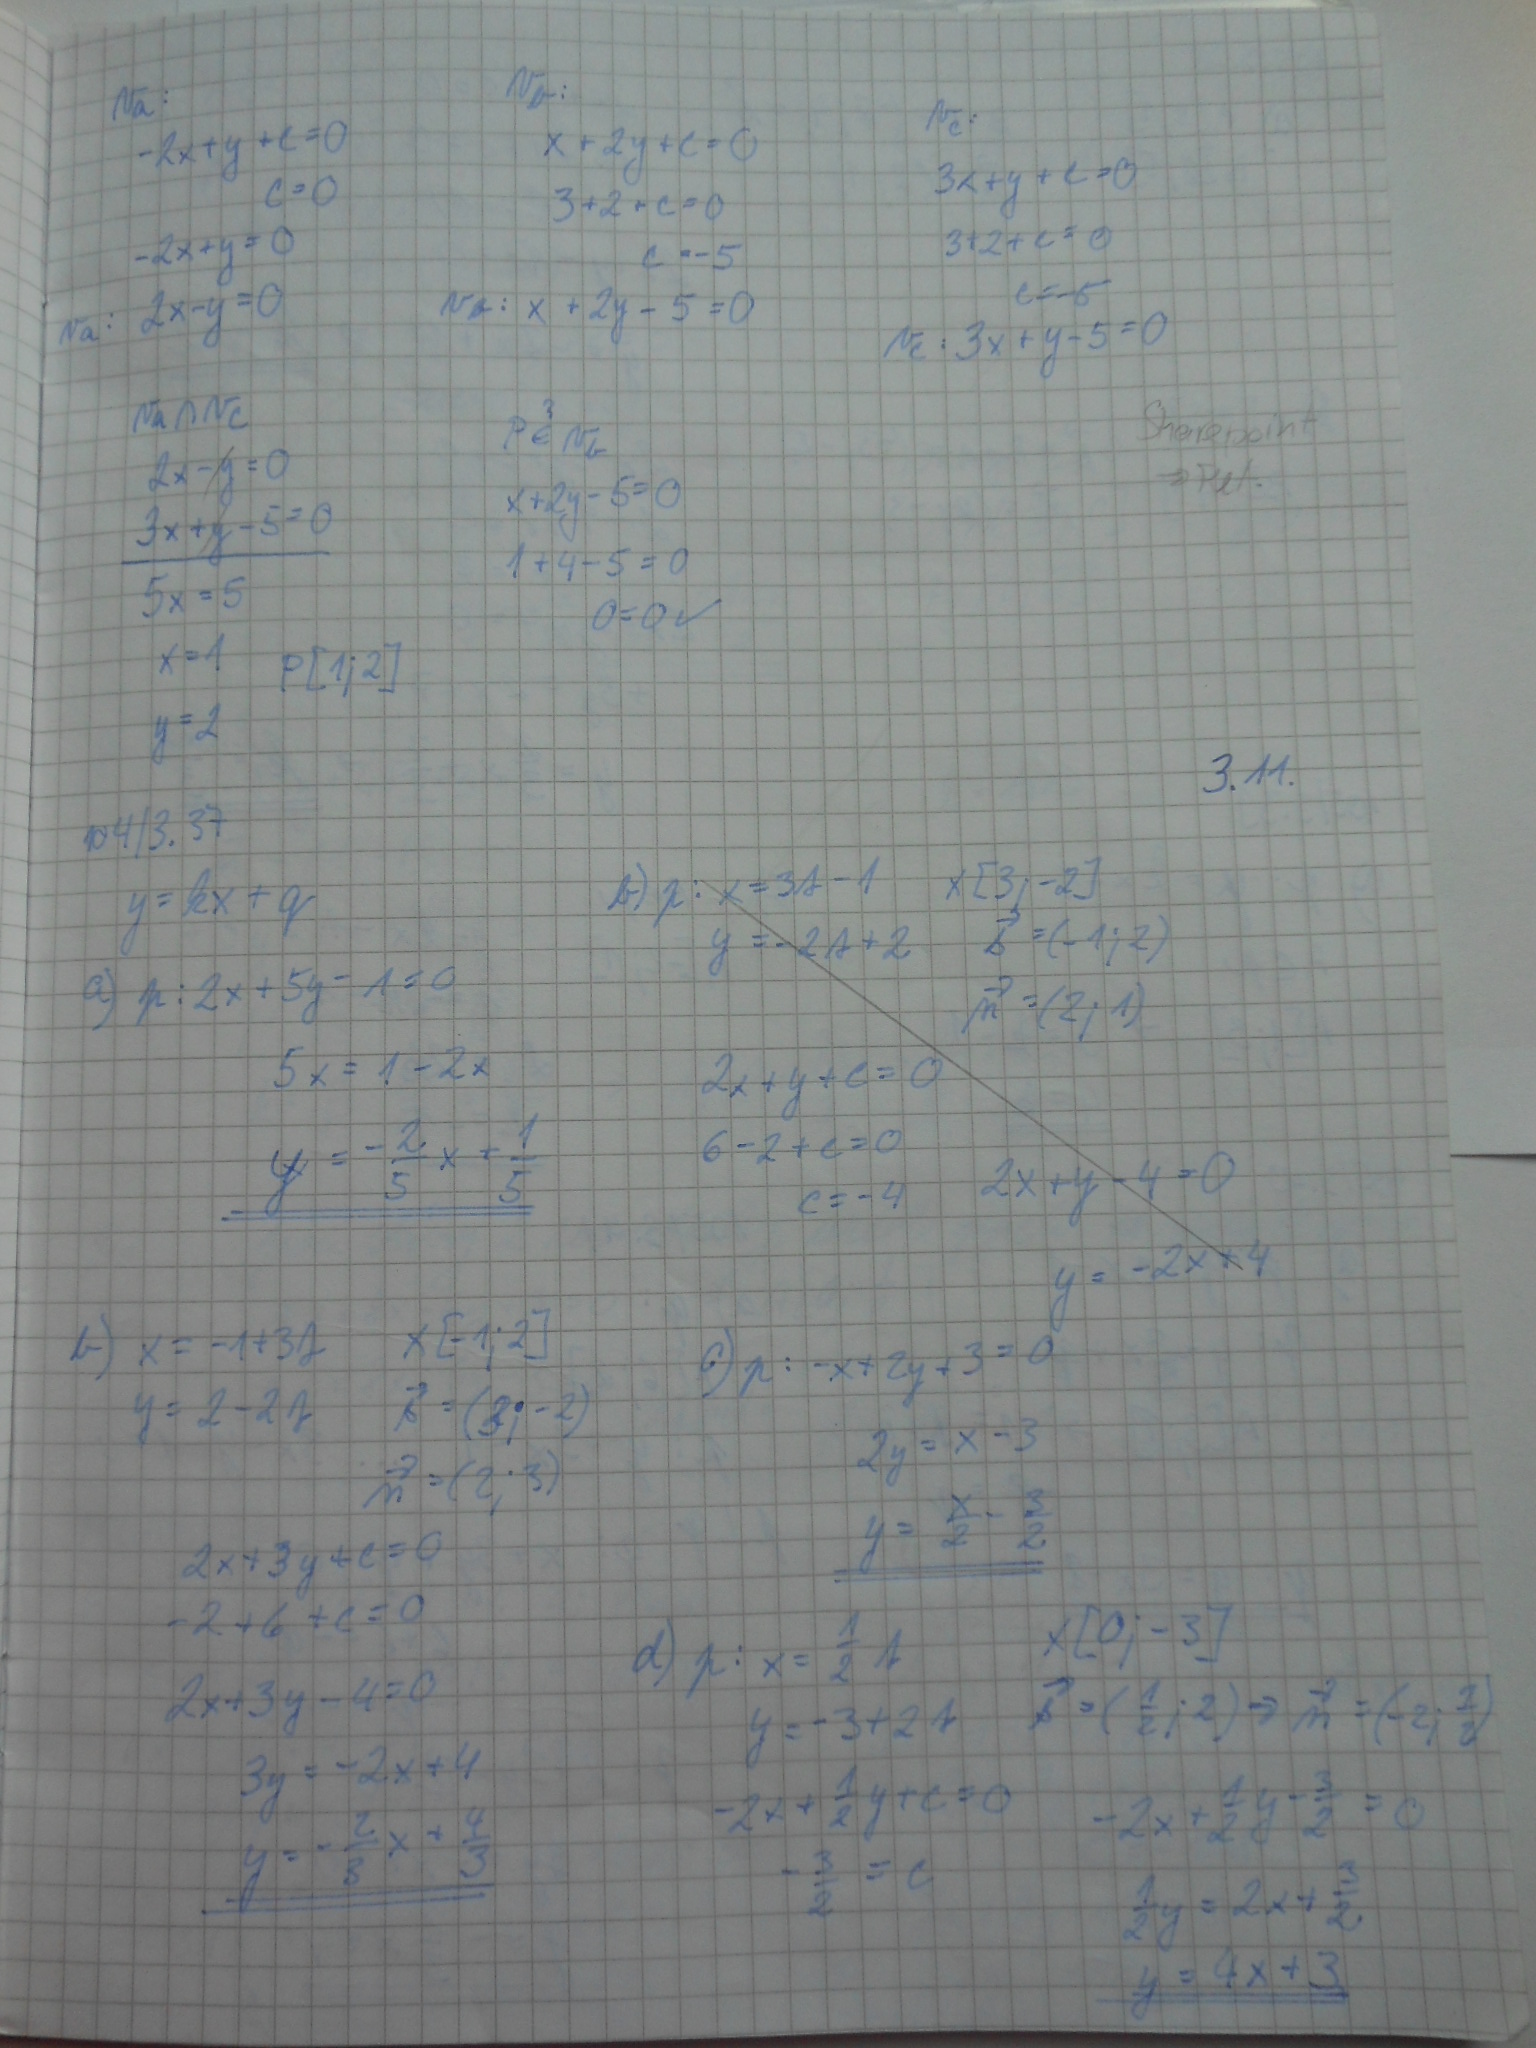 Va:
-2x+y+c=0
c=0
-2x+y=0
Va: 2x-y=0
Vb:
x+2y+c=0
3+2+c=0
c=-5
Vb: x+2y-5=0
Vc:
3x+y+c=0
3+2+c=0
c=-5
Vc: 3x+y-5=0
Va∩Vc
2x-y=0
3x+y-5=0
5x=5
x=1
P[1;2]
y=2
P ∈ Vb
x+2y-5=0
1+4-5=0
0=0✓
Sharepoint
3.11.
104/3.37
y=kx+q
a) p: 2x+5y-1=0
5x=1-2x
y=-2/5x+1/5
b) p: x=3t-1 X[3;-2]
y=-2t+2 s⃗=(-1;2)
n⃗=(2;1)
2x+y+c=0
6-2+c=0
c=-4
2x+y-4=0
y=-2x+4
b) x=-1+3t X[-1;2]
y=2-2t s⃗=(3;-2)
n⃗=(2;3)
2x+3y+c=0
-2+6+c=0
2x+3y-4=0
3y=-2x+4
y=-2/3x+4/3
c) p: -x+2y+3=0
2y=x-3
y=x/2-3/2
d) p: x=1/2t X[0;-3]
y=-3+2t s⃗=(1/2;2)→n⃗=(-2;1/2)
-2x+1/2y+c=0
-3/2=c
-2x+1/2y-3/2=0
1/2y=2x+3/2
y=4x+3